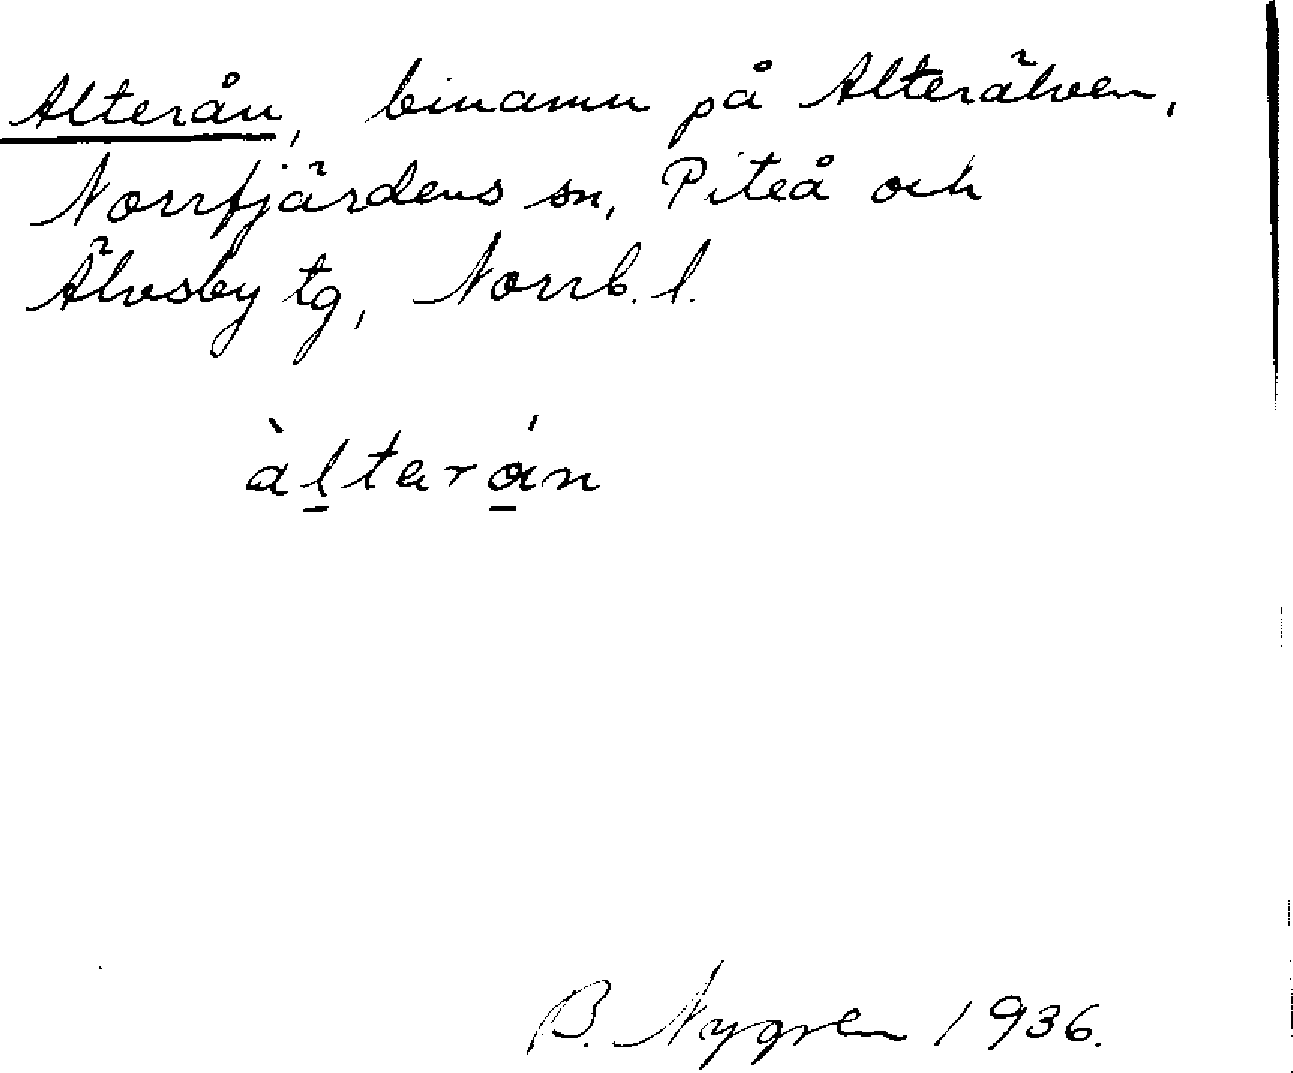 Alterån, binamn på Alterälven,
Norrfjärdens sn, Piteå och
Älvsby tg, Norrb. l.
àlterán
B. Nygren 1936.